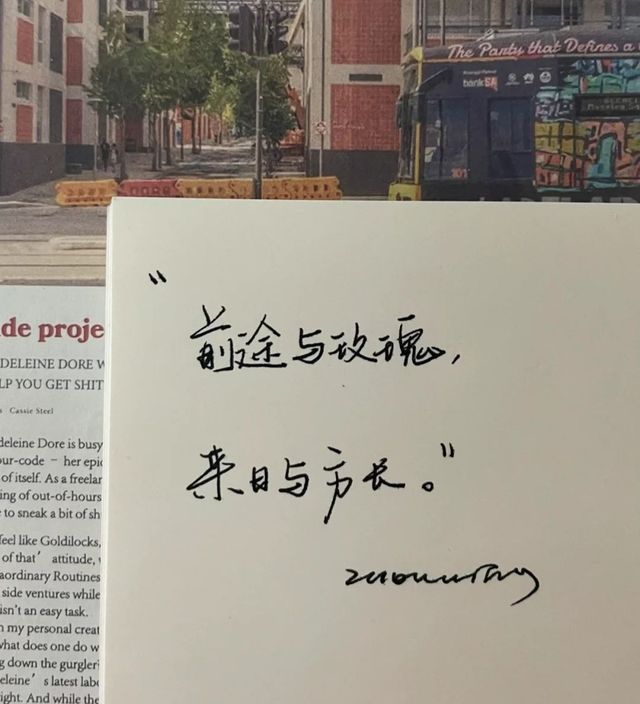 The Party that Defines a
bankSA
101
de proje
DELEINE DORE W
LP YOU GET SHIT
Cassie Steel
deleine Dore is busy
our-code – her epic
of itself. As a freelan
ing of out-of-hours
to sneak a bit of sh
feel like Goldilocks,
of that' attitude,
aordinary Routines
side ventures while
isn't an easy task.
n my personal creat
what does one do w
g down the gurgler
eleine's latest labo
ight. And while the
"前途与玫瑰,
来日与方长。"